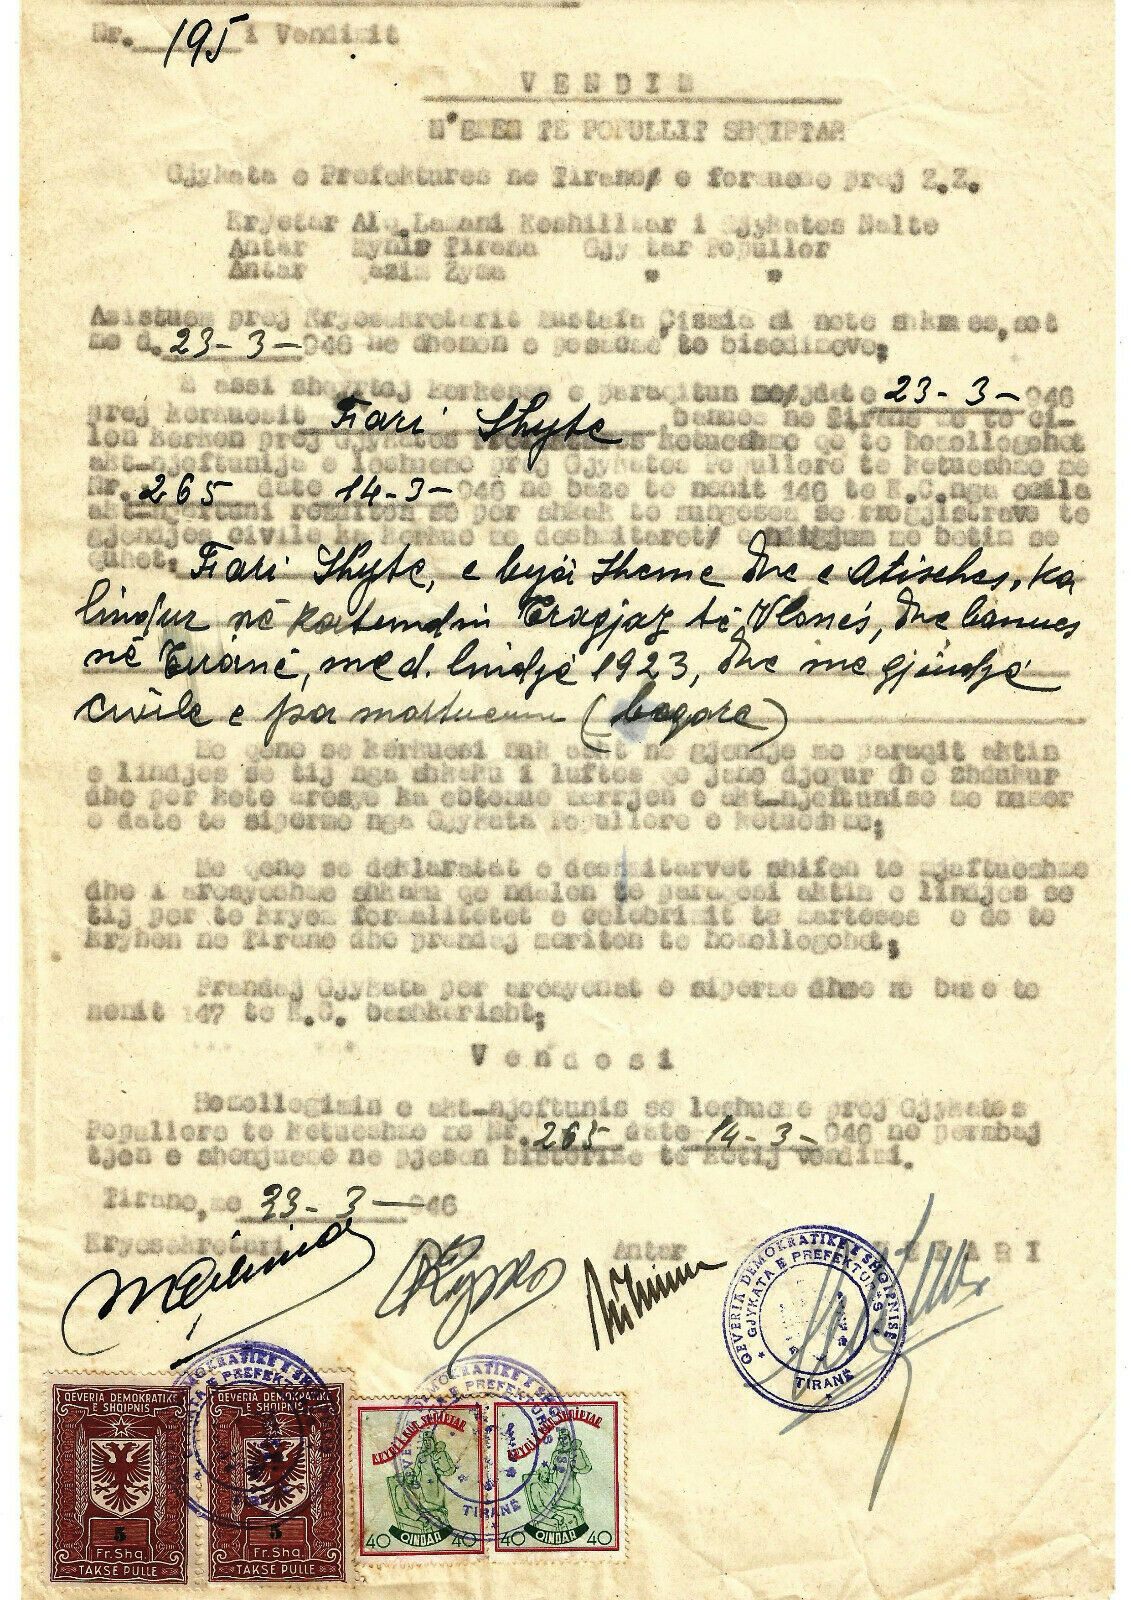 Nr. 195 i Vendimit
VENDIM
N'EMEN TE POPULLIT SHQIPTAR
Gjykata e Prefektures ne Tirane/ e formueme prej Z.Z.
Kryetar Keshilltar i Gjykates Nalte
Antar Tirana Gjyqtar Popullor
Antar Zyma " "
Asistuem prej Kryesekretarit Mustafa si note shkrues, sot
me d. 23-3-946 ne dhomen e te bisedimeve;
E assi shqyrtoj kerkesen e paraqitun me date 23-3-946
prej kerkuesit Fiari Shyte banues ne Tirane e te ci-
len kerkon prej Gjykates ketueshme qe te homollogohet
akt-njoftunija e leshueme prej Gjykates Popullore te ketueshme me
Nr. 265 date 14-3-946 ne baze te nenit 146 te K.C. nga e cila
akt-njoftuni rezulton se per shkak te mungeses se rregjistrave te
gjendjes civile ka kerkue me deshmitaret/ me betim se
quhet: Fiari Shyte, e bija Sheme dhe e Atisches, ka
lindur në katundin Tragjaz të Vlonës, dhe banues
në Tiranë, me d. lindje 1923, dhe me gjindje
civile e pa martueme (begare)
Me qene se kerkuesi nuk asht ne gjendje me paraqit aktin
e lindjes se tij nga shkaku i luftes qe jane djegur dhe zhdukur
dhe per kete aresye ka obtenue marrjen e akt-njoftunise me numer
e date te siperme nga Gjykata Popullore e ketueshme;
Me qene se deklaratat e deshmitarvet shifen te mjaftueshme
dhe i aresyeshme shkaku qe ndalon te paraqesi aktin e lindjes se
tij per te kryem formalitetet e celebrimit te marteses e do te
kryhen ne Tirane dhe prandaj meriton te homollogohet;
Prandaj Gjykata per aresyenat e siperme dhe ne baze te
nenit 147 te K.C. bashkarisht;
Vendosi
Homollogimin e akt-njoftunis se leshueme prej Gjykates
Popullore te ketueshme me Nr. 265 date 14-3-946 ne permbaj
tjen e shenjueme ne pjesen historike te ketij vendimi.
Tirane, me 23-3-946
Kryesekretari Antar
QEVERIA DEMOKRATIKE E SHQIPNISË
GJYKATA E PREFEKTURËS
TIRANË
QEVERIA DEMOKRATIKE
E SHQIPNIS
5
Fr. Shq.
TAKSE PULLE
QEVERIA DEMOKRATIKE
E SHQIPNIS
5
Fr. Shq.
TAKSE PULLE
KRYQI KUQ SHQIPTAR
40 QINDAR 40
KRYQI KUQ SHQIPTAR
40 QINDAR 40
TIRANË